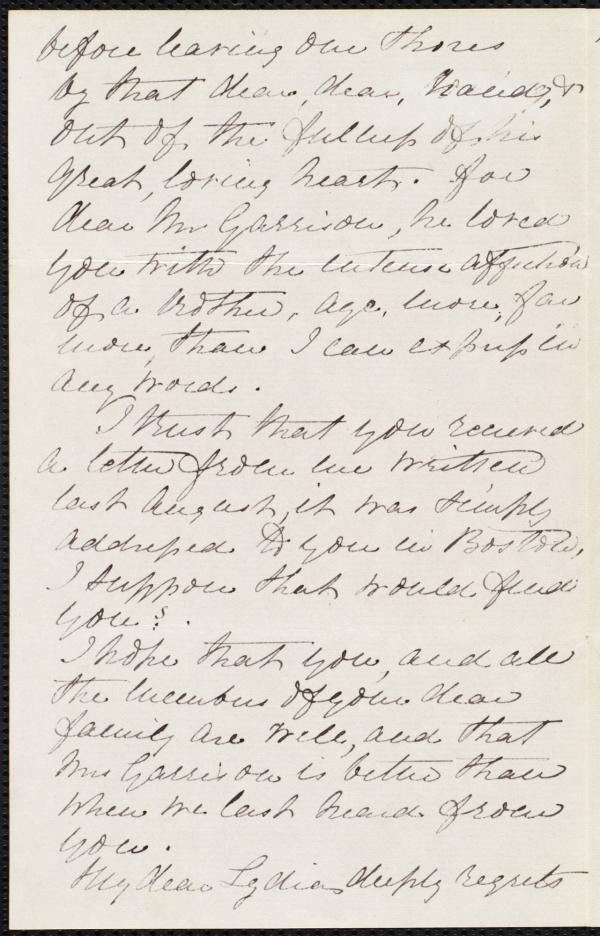 before leaving our shores
by that dear, dear, hand, &
out of the fullness of his
great, loving heart. For
dear Mr Garrison, he loved
you with the intense affection
of a brother, aye, more, far
more, than I can express in
any words.
I trust that you received
a letter from me written
last August, it was simply
addressed to you in Boston,
I suppose that would find
you?.
I hope that you, and all
the members of your dear
family are well, and that
Mrs Garrison is better than
when we last heard from
you.
My dear Lydia deeply regrets